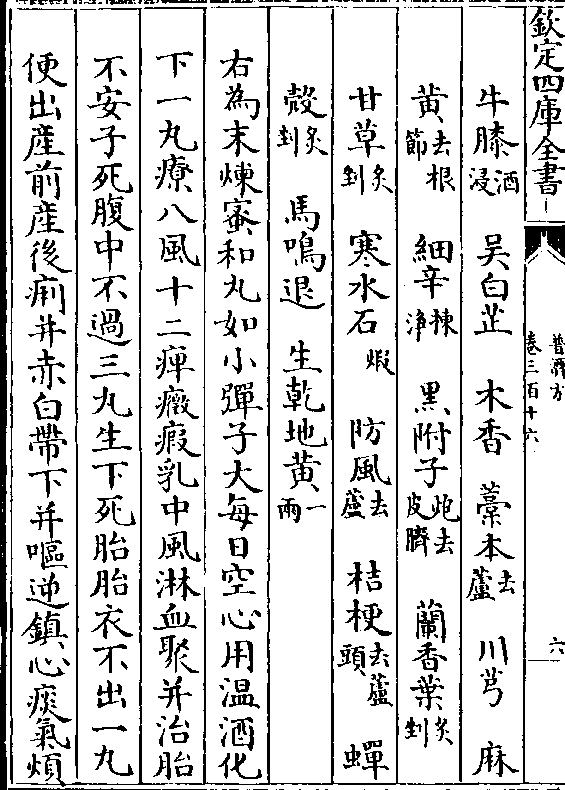 欽定四庫全書
普濟方
卷三百十六
六
牛膝酒浸 吴白芷 木香 藁本去蘆 川芎 麻
黄去根節 細辛揀淨 黑附子炮去皮臍 蘭香葉炙剉
甘草炙剉 寒水石煆 防風去蘆 桔梗去蘆頭 蟬
殻炙剉 馬鳴退 生乾地黄一兩
右為末煉蜜和丸如小彈子大每日空心用温酒化
下一丸療八風十二痺癥瘕乳中風淋血聚并治胎
不安子死腹中不過三丸生下死胎胎衣不出一丸
便出産前産後痢并赤白帶下并嘔逆鎮心痰氣煩